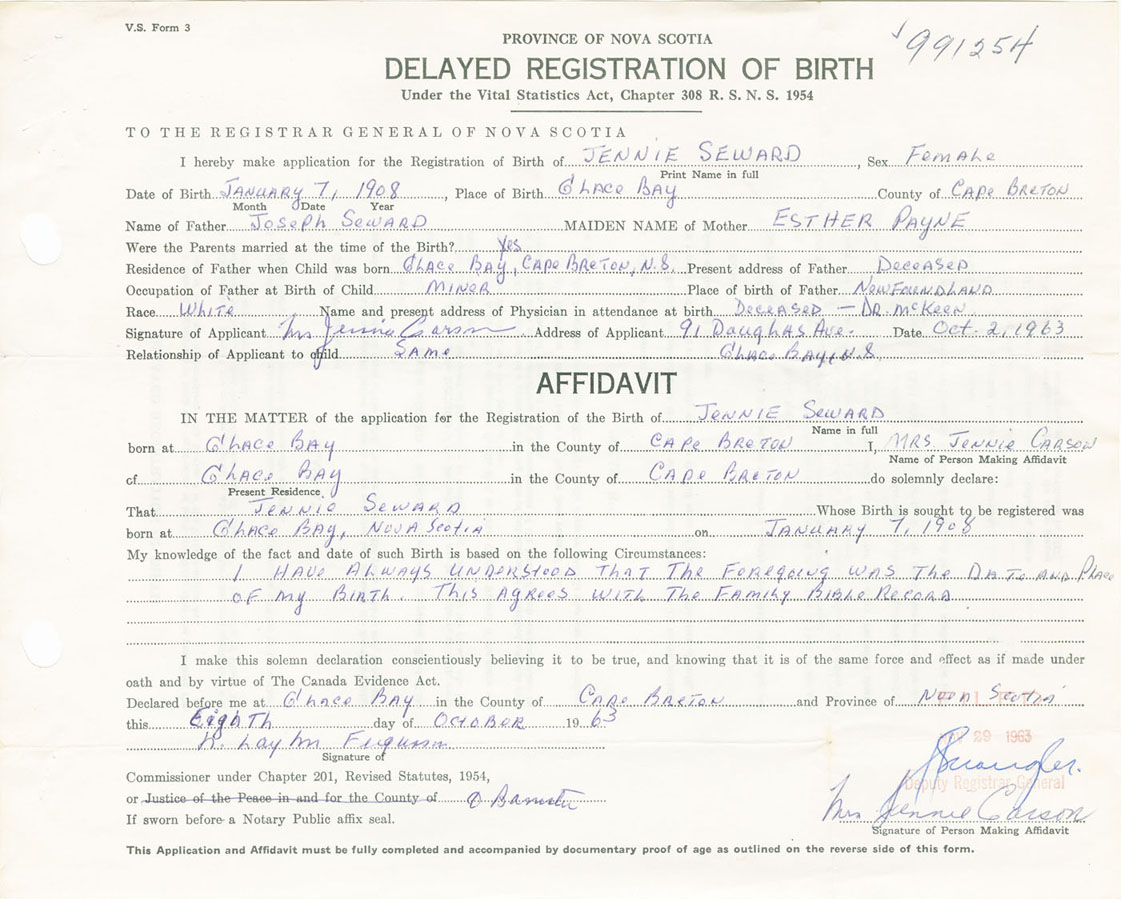 V.S. Form 3
991254
PROVINCE OF NOVA SCOTIA
DELAYED REGISTRATION OF BIRTH
Under the Vital Statistics Act, Chapter 308 R. S. N. S. 1954
TO THE REGISTRAR GENERAL OF NOVA SCOTIA
I hereby make application for the Registration of Birth of JENNIE SEWARD, Sex Female
Print Name in full
Date of Birth JANUARY 7, 1908, Place of Birth GLACE BAY County of CAPE BRETON
Month Date Year
Name of Father JOSEPH SEWARD MAIDEN NAME of Mother ESTHER PAYNE
Were the Parents married at the time of the Birth? Yes
Residence of Father when Child was born GLACE BAY, CAPE BRETON, N.S. Present address of Father DECEASED
Occupation of Father at Birth of Child MINER Place of birth of Father NEWFOUNDLAND
Race WHITE Name and present address of Physician in attendance at birth DECEASED — DR. McKEEN
Signature of Applicant Mrs Jennie Carson Address of Applicant 91 Douglas Ave. Date Oct. 2, 1963
Relationship of Applicant to child SAME GLACE BAY, N.S.
AFFIDAVIT
IN THE MATTER of the application for the Registration of the Birth of JENNIE SEWARD
Name in full
born at GLACE BAY in the County of CAPE BRETON I, MRS. JENNIE CARSON
Name of Person Making Affidavit
of GLACE BAY in the County of CAPE BRETON do solemnly declare:
Present Residence
That JENNIE SEWARD Whose Birth is sought to be registered was
born at GLACE BAY, NOVA SCOTIA on JANUARY 7, 1908
My knowledge of the fact and date of such Birth is based on the following Circumstances:
I HAVE ALWAYS UNDERSTOOD THAT THE FOREGOING WAS THE DATE AND PLACE
OF MY BIRTH. THIS AGREES WITH THE FAMILY BIBLE RECORD
I make this solemn declaration conscientiously believing it to be true, and knowing that it is of the same force and effect as if made under
oath and by virtue of The Canada Evidence Act.
Declared before me at GLACE BAY in the County of CAPE BRETON and Province of NOVA SCOTIA
this EIGHTH day of OCTOBER 1963
Ferguson
Signature of
29 1963
Commissioner under Chapter 201, Revised Statutes, 1954,
Deputy Registrar General
or Justice of the Peace in and for the County of a Barrister
Mrs Jennie Carson
If sworn before a Notary Public affix seal.
Signature of Person Making Affidavit
This Application and Affidavit must be fully completed and accompanied by documentary proof of age as outlined on the reverse side of this form.